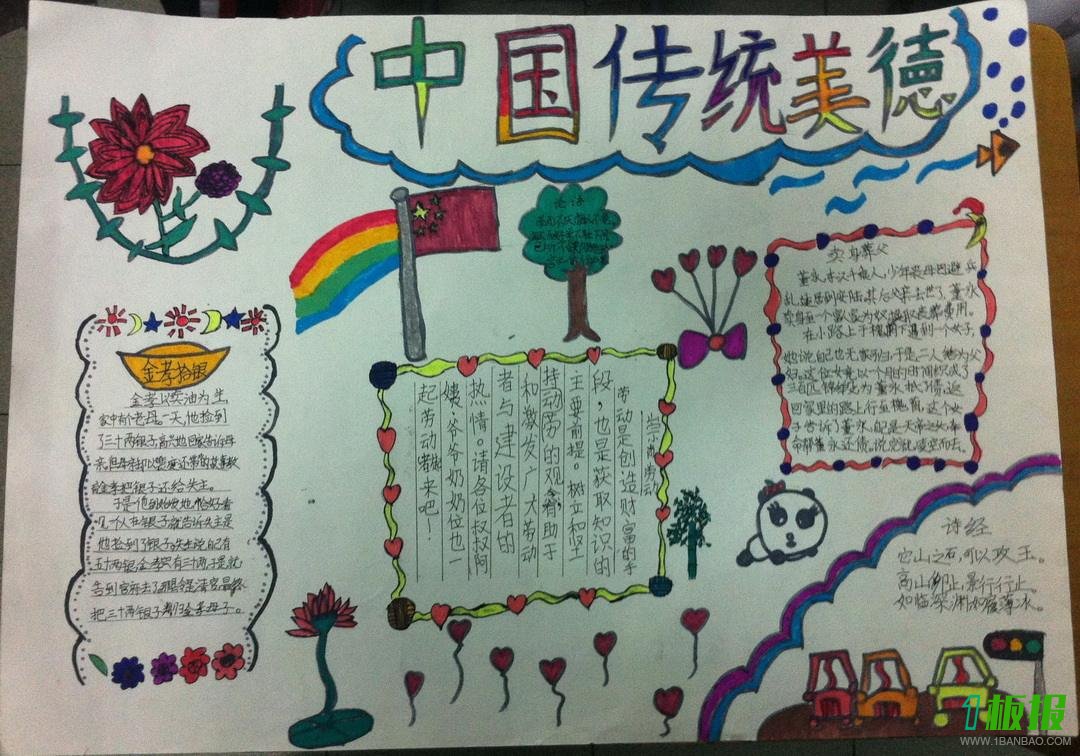 中国传统美德
论语
金孝拾银
金孝以卖油为生,
家中有个老母。一天,他捡到
了三十两银子,高兴地回家告诉母
金孝把银子还给失主。
几个人在
他捡到了银子,失主说自己有
五十两银,金孝只有三十两,于是就
告到官府去了,
把三十两银子
崇尚劳动
劳动是创造财富的手
段,也是获取知识的
主要前提。树立和坚
持劳动的观念,有助于
和激发广大劳动
者与建设者的
热情。请各位叔叔阿
姨,爷爷奶奶位也一
起劳动起来吧!
卖身葬父
董永,东汉千乘人,少年丧母,因避兵
乱迁居到安陆。其后父亲去世了,董永
卖身至一个富家为奴,换取丧葬费用。
在小路上于槐荫下遇到一个女子,
她说自己也无家可归,于是二人结为夫
妇。这位女竟以一个月的时间织成了
三百匹锦
回家里的路上行至槐荫,这个女
子告诉了董永,自己是天帝之女,奉
命帮董永还债。说完就凌空而去。
诗经
它山之石,可以攻玉。
高山仰止,景行行止。
如临深渊,如履薄冰。
1板报
WWW.1BANBAO.COM